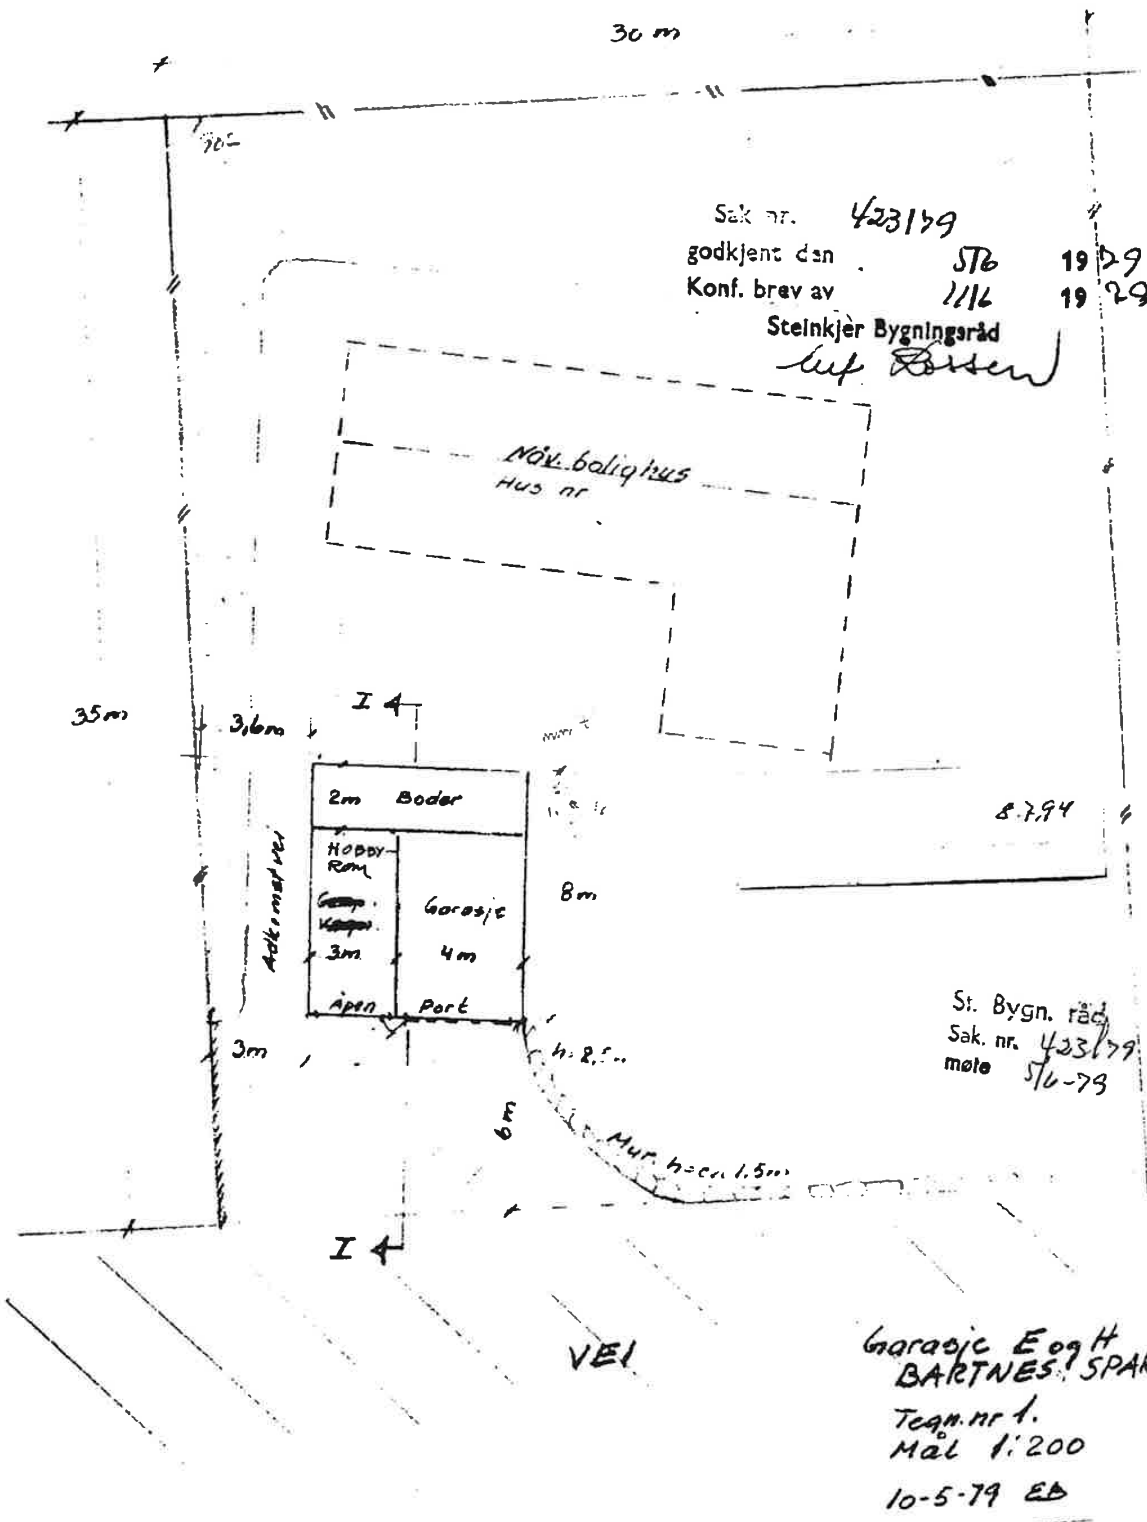 30 m
Sak nr. 423/79
godkjent den 5/6 1979
Konf. brev av 11/6 1979
Steinkjer Bygningsråd
Nåv. bolighus
Hus nr
35m
3,6m
I
2m Boder
HOBBY-
ROM
Garasje
8m
3m 4m
Åpen Port
Adkomstvei
8.7.94
3m
6m
Mur. h=ca 1.5m
St. Bygn. råd
Sak. nr. 423/79
møte 5/6-79
I
VEI
Garasje E og H
BARTNES
Tegn. nr 1.
Mål 1:200
10-5-79 EB